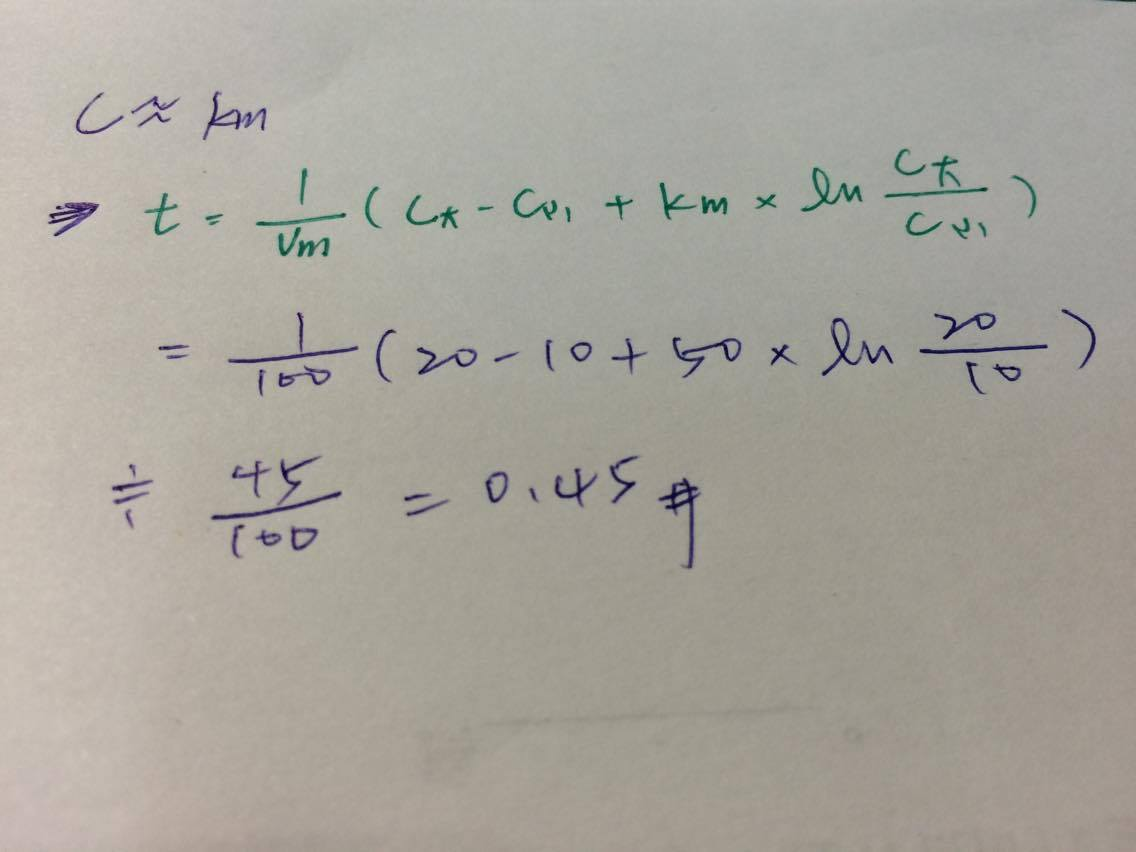 C ≈ km
⇒ t = 1/Vm ( C大 - C小 + km × ln C大/C小 )
= 1/100 ( 20 - 10 + 50 × ln 20/10 )
≒ 45/100 = 0.45 #